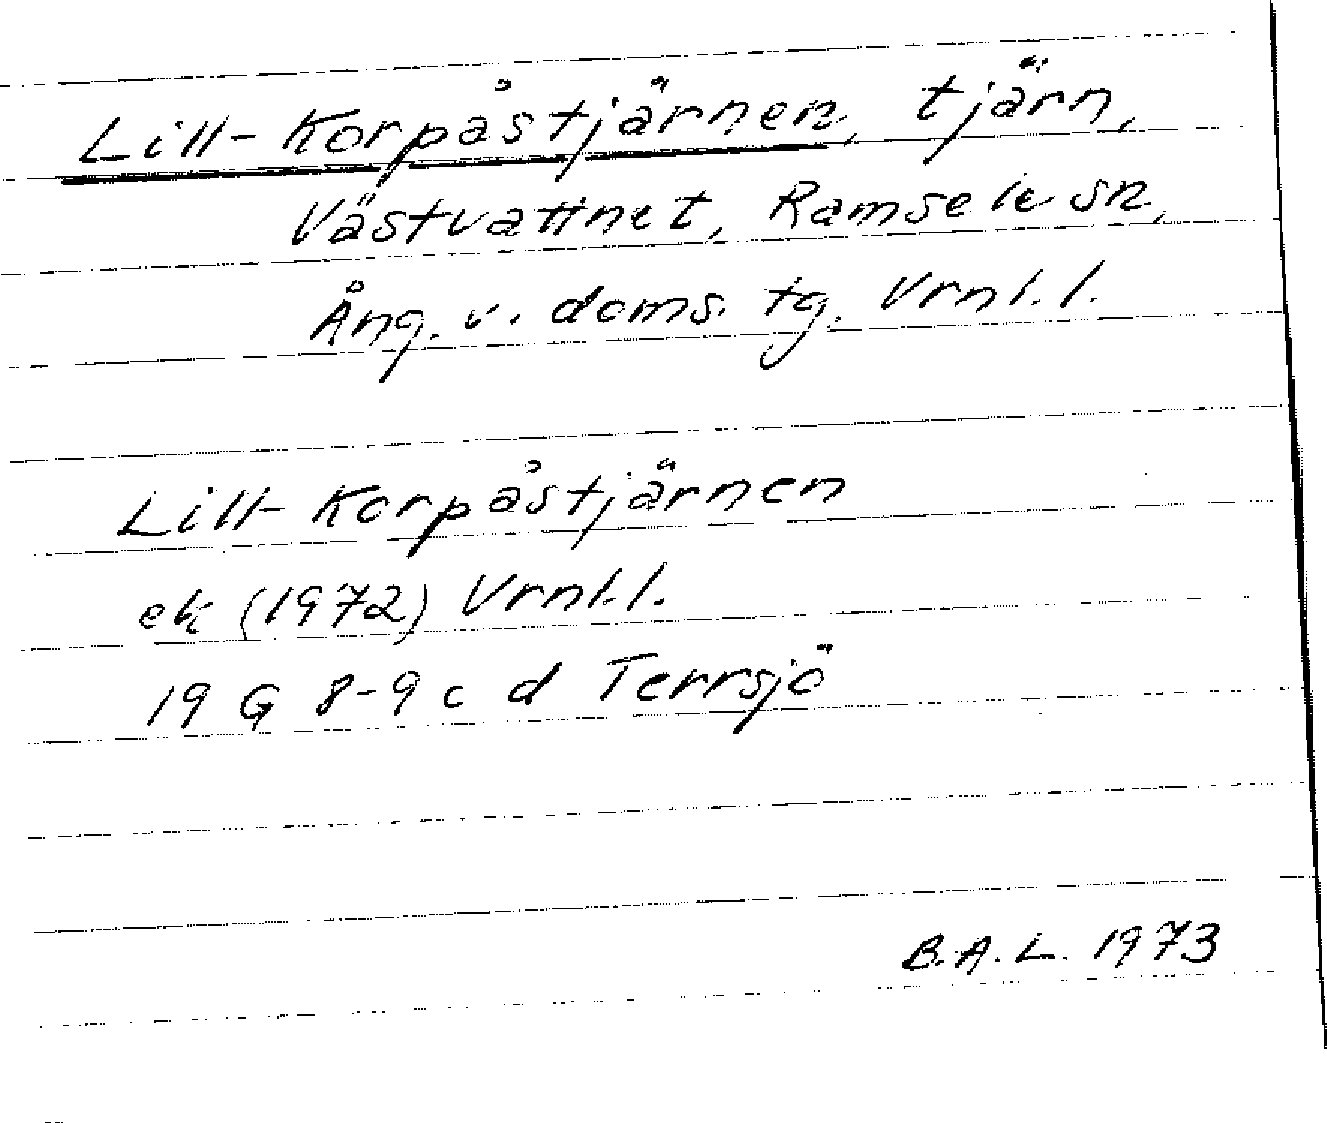 Lill-Korpåstjärnen, tjärn,
Västvattnet, Ramsele sn,
Ång. v. doms. tg. Vrnl. l.
Lill-Korpåstjärnen
ek (1972) Vrnl. l.
19 G 8-9 c d Terrsjö
B.A.L. 1973